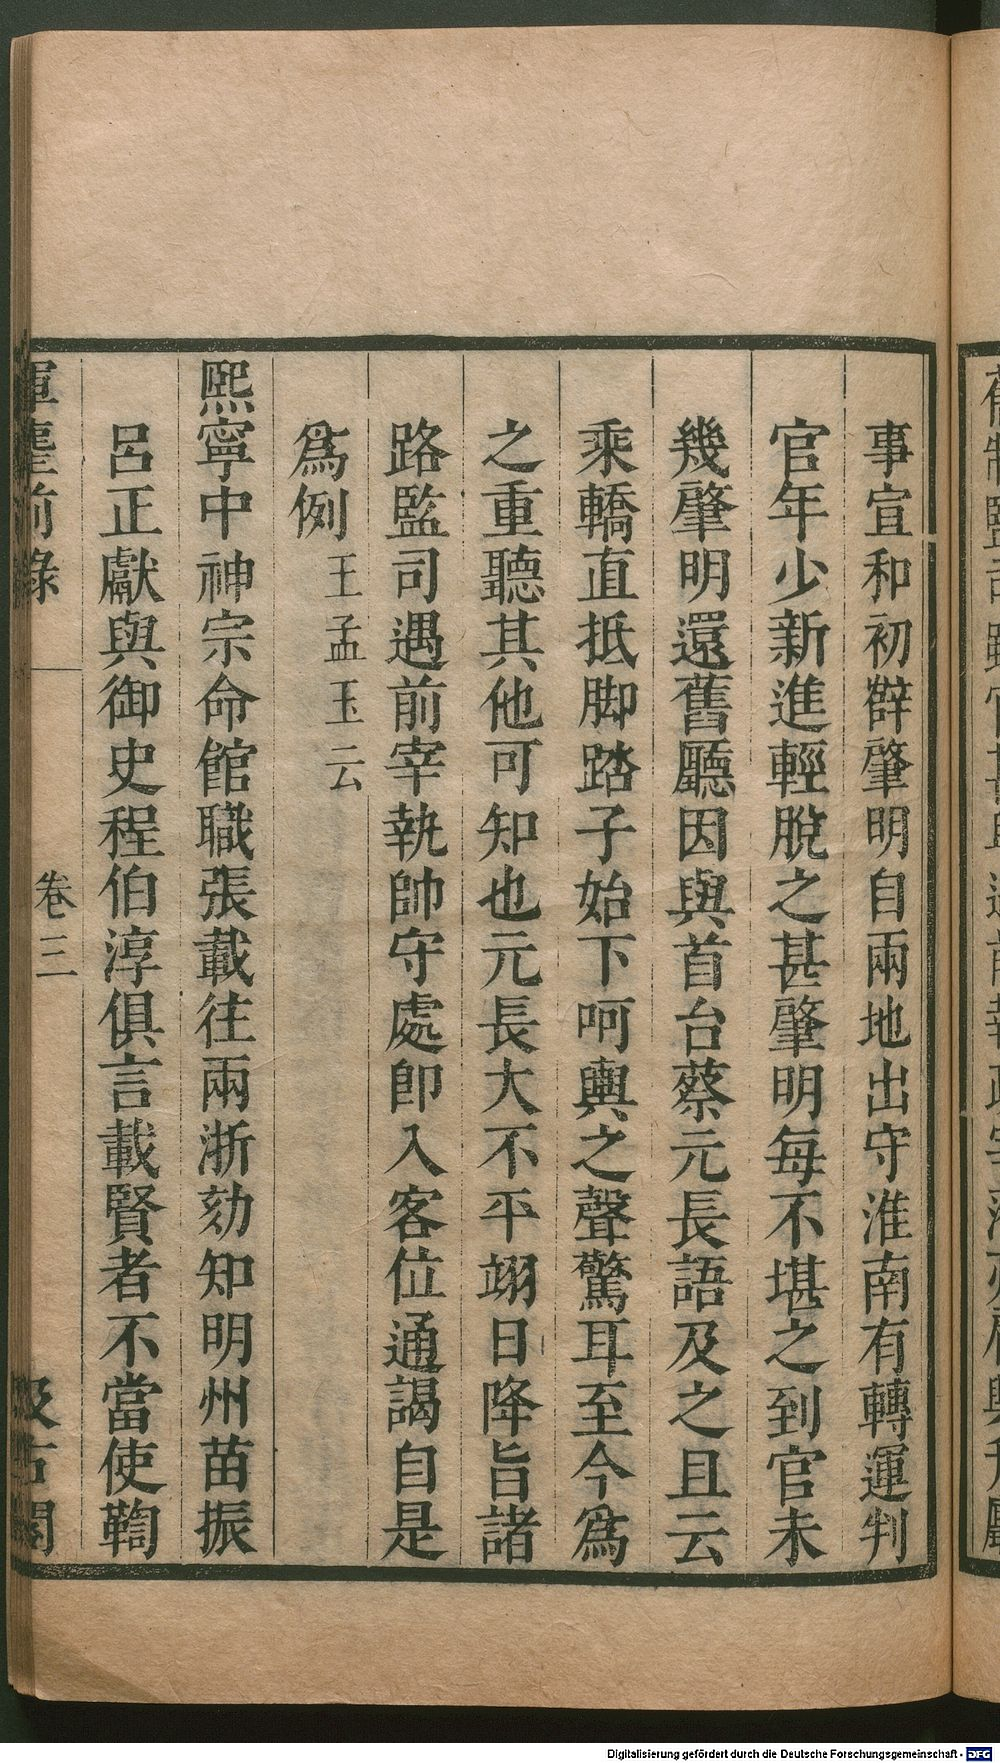 事宣和初薛肇明自兩地出守淮南有轉運判
官年少新進輕脫之甚肇明每不堪之到官未
幾肇明還舊廳因與首台蔡元長語及之且云
乘轎直抵脚踏子始下呵輿之聲驚耳至今爲
之重聽其他可知也元長大不平翊日降旨諸
路監司遇前宰執帥守處即入客位通謁自是
爲例王孟玉云
熙寧中神宗命館職張載往兩浙劾知明州苗振
呂正獻與御史程伯淳俱言載賢者不當使鞫
揮麈前錄 卷三 汲古閣
Digitalisierung gefördert durch die Deutsche Forschungsgemeinschaft - DFG